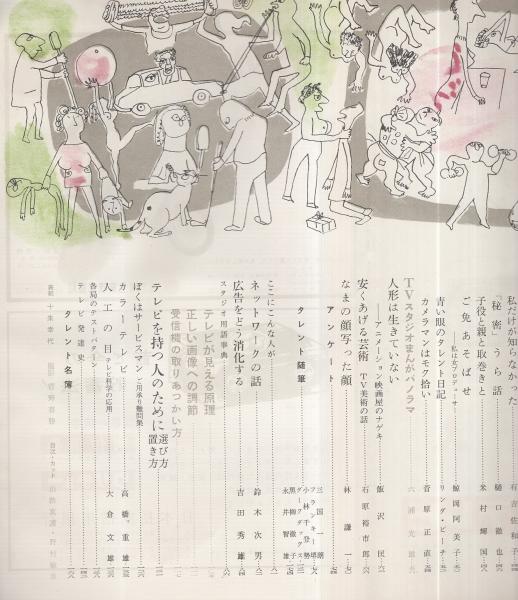 私だけが知らなかった……有吉佐和子
「秘密」うら話……樋口徹也
子役と親と取巻きと……米村輝国
ご免あそばせ
――私は女プロデューサー……鯨岡阿美子
青い眼のタレント日記……リンダ・ビーチ
カメラマンはモク拾い……菅原正直
TVスタジオまんがパノラマ……六浦光雄
人形は生きていない
――アニメーション映画屋のナゲキ……飯沢匡
安くあげる芸術 TV美術の話……石原裕市郎
なまの顔写った顔……林謙一
アンケート
タレント随筆
三国一朗
フランキー堺
小林千登勢
ダークダックス
黒柳徹子
永井智雄
ここにこんな人が
ネットワークの話……鈴木次男
広告をどう消化する……吉田秀雄
スタジオ用語事典
テレビが見える原理
正しい画像への調節
受信機の取りあつかい方
テレビを持つ人のために 選び方 置き方
ぼくはサービスマン ご用承り難問集
カラーテレビ……高橋重雄
人工の目 テレビ科学の応用……大倉文雄
各局のテストパターン
テレビ発達史
タレント名簿
表紙 十朱幸代